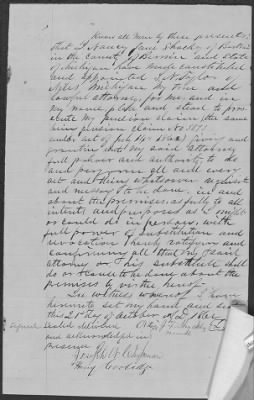 Know all Men by these presents
that I Nancy Jane Shockly of
in the County of Berrien and State
of Michigan have made constituted
and appointed
Niles Michigan my true and
lawful attorney, for me and in
my name place and stead to pros-
ecute my pension claim the same
being pension claim No.
under act of July 14th 1862 giving and
granting unto my said attorney
full power and authority to do
and perform all and every
act and thing whatsoever requisite
and necessary to be done in and
about the premises as fully to all
intents and purposes as I might
or could do in person, with
full power of substitution and
revocation hereby ratifying and
confirming all that my said
attorney or his substitute shall
do or cause to be done about the
premises by virtue hereof
In witness whereof I have
hereunto set my hand and seal
this 25 day of October A.D.
signed sealed delivered
and acknowledged in
presence
Joseph W.
Henry Coolidge